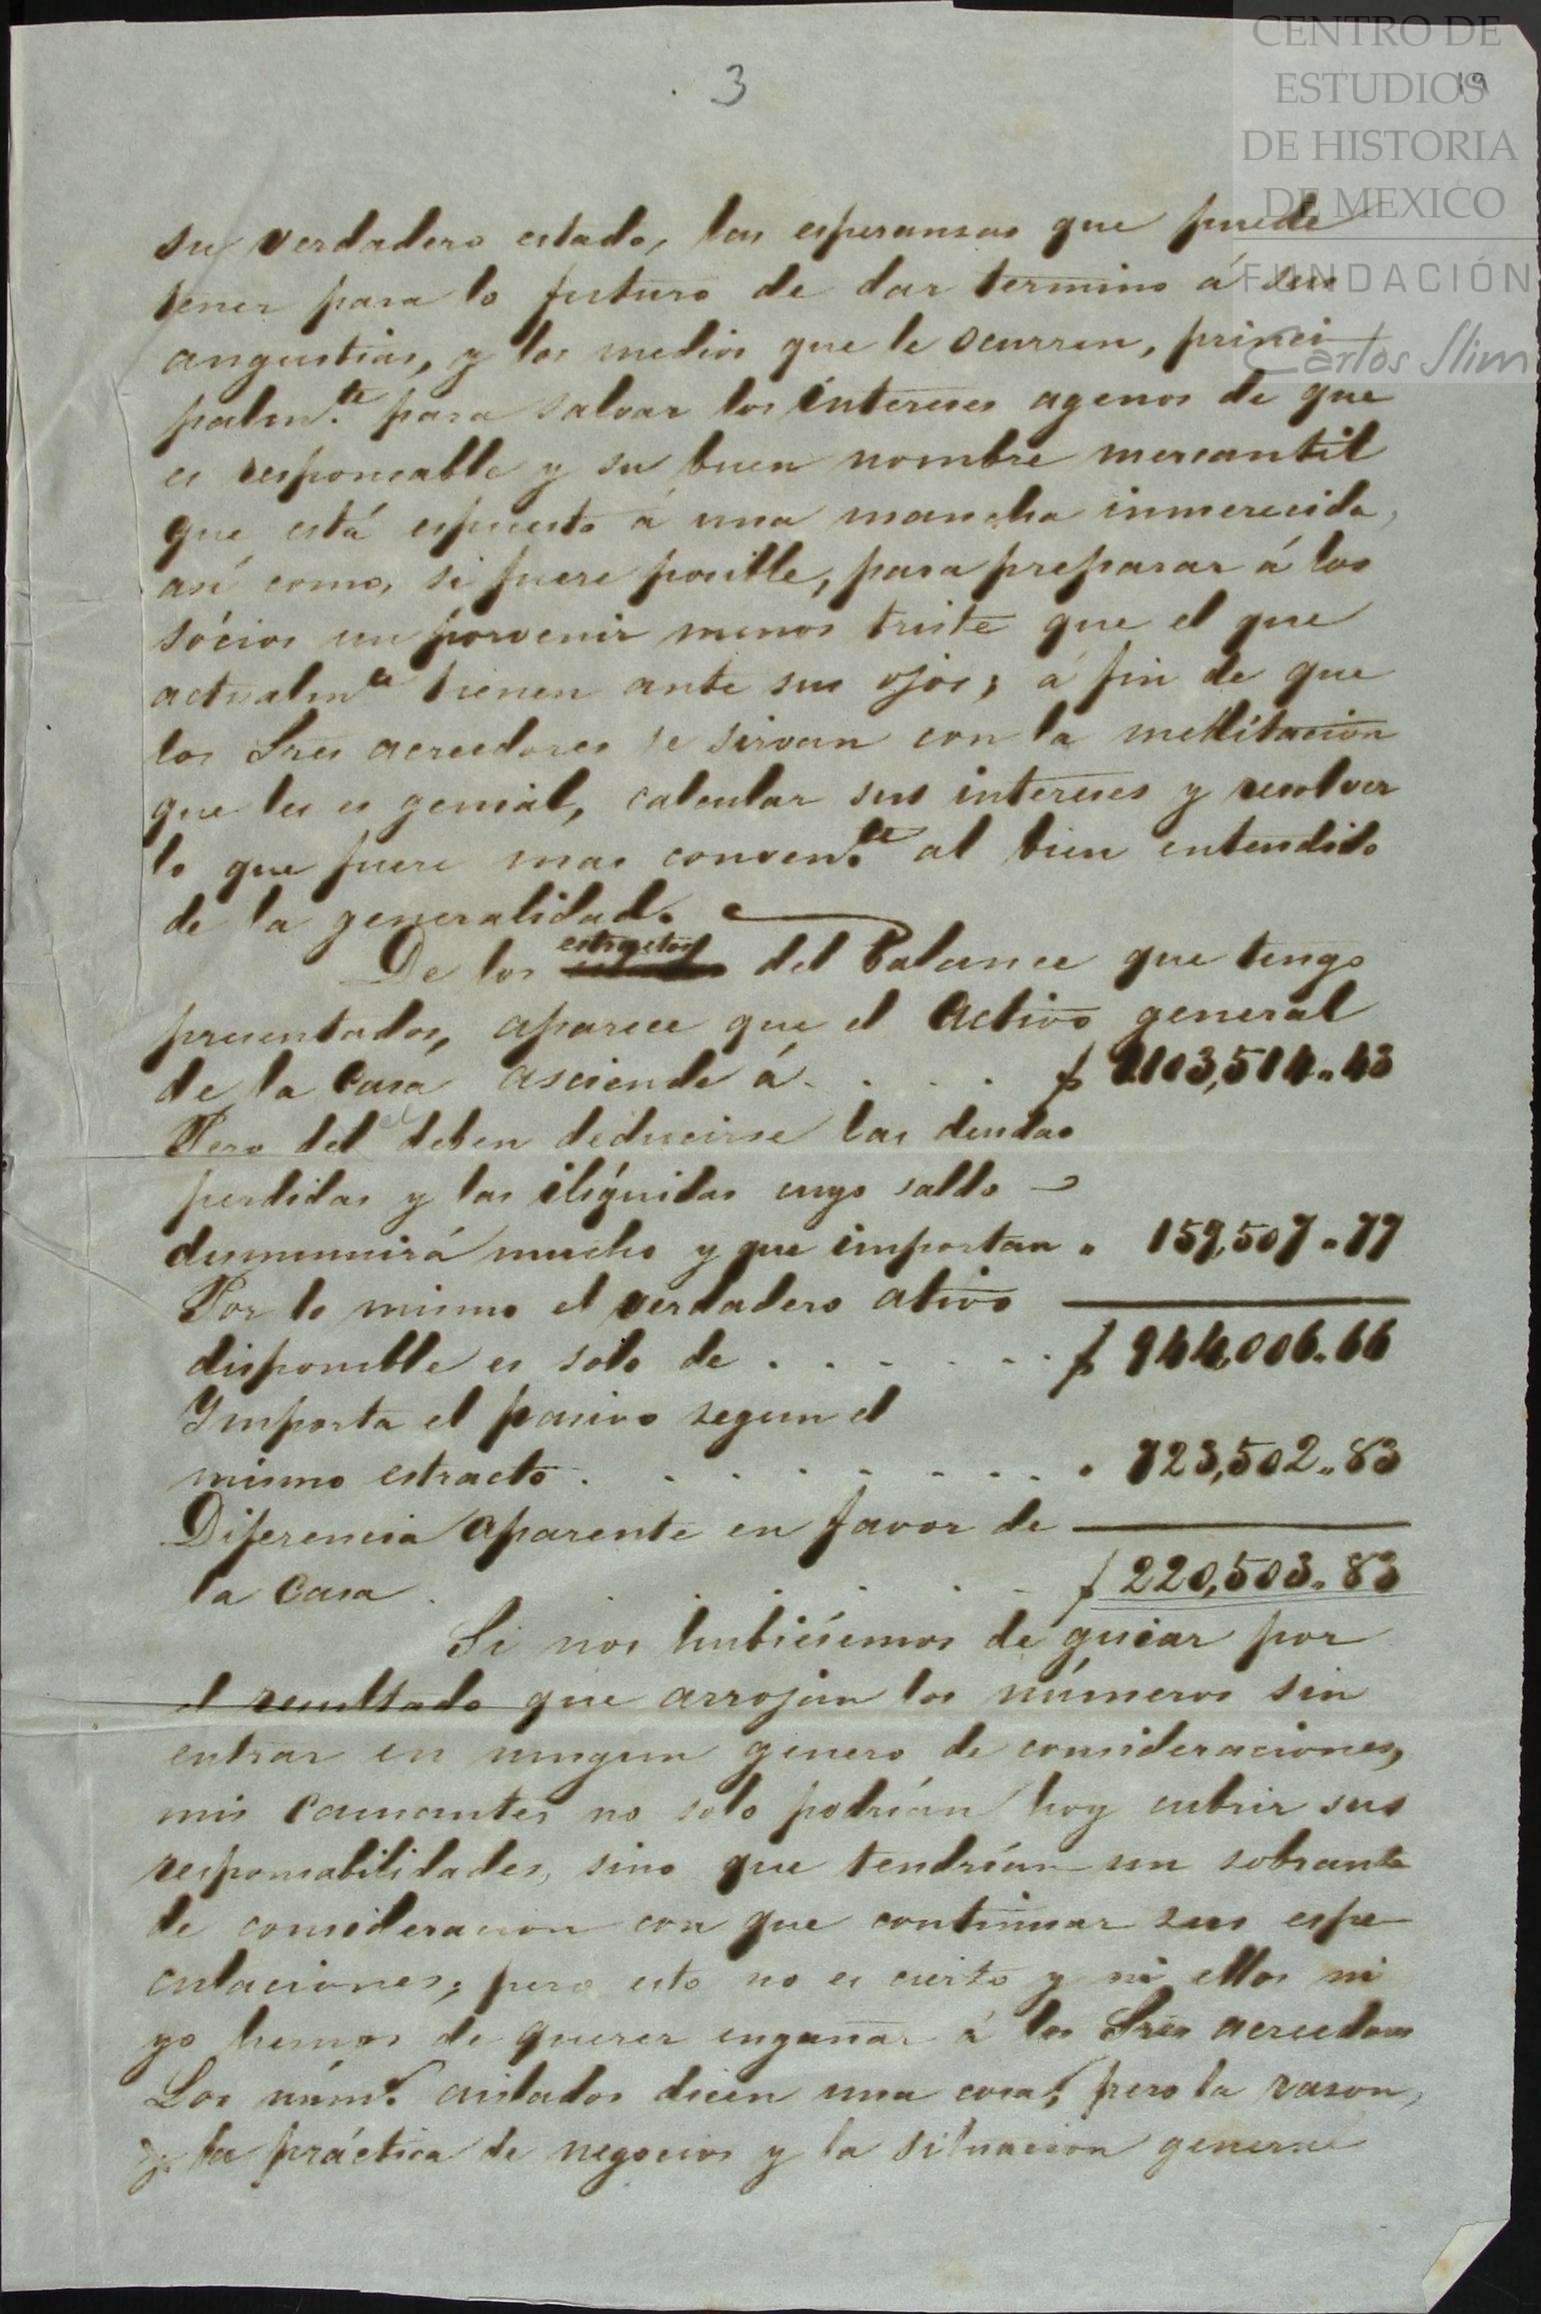 CENTRO DE
ESTUDIOS
DE HISTORIA
DE MEXICO
FUNDACIÓN
Carlos Slim
3
19
su verdadero estado, las esperansas que puede
tener para lo futuro de dar termino á sus
angustias, y los medios que le ocurren, princi
palm.te para salvar los intereses agenos de que
es responsable y su buen nombre mercantil
que está espuesto á una mancha inmerecida,
así como, si fuere posible, para preparar á los
sócios un porvenir menos triste que el que
actualmte tienen ante sus ojos; á fin de que
los Sres acreedores se sirvan con la meditacion
que les es genial, calcular sus intereses y resolver
lo que fuere mas conven.te al bien entendido
de la generalidad.
De los estractos del balance que tengo
presentados, aparece que el activo general
de la Casa asciende á . . . . $ 1.103,514.. 43
Pero del deben deducirse las deudas
perdidas y las ilíquidas cuyo saldo
desminuirá mucho y que importan " 159,507 .. 77
Por lo mismo el verdadero ativo
disponible es solo de . . . . . . $ 944,006.. 66
Importa el pasivo segun el
mismo estracto . . . . . . . . . " 723,502.. 83
Diferencia aparente en favor de
la Casa . . . . $ 220,503.. 83
Si nos hubiésemos de guiar por
el resultado que arrojan los números sin
entrar en ningun genero de consideraciones,
mis causantes no solo podrían hoy cubrir sus
responsabilidades, sino que tendrían un sobrante
de consideracion con que continuar sus espe
culaciones; pero esto no es cierto y ni ellos ni
yo hemos de querer engañar á los Sres acreedores
Los núms. aislados dicen una cosa; pero la rason,
y la práctica de negocios y la situacion general